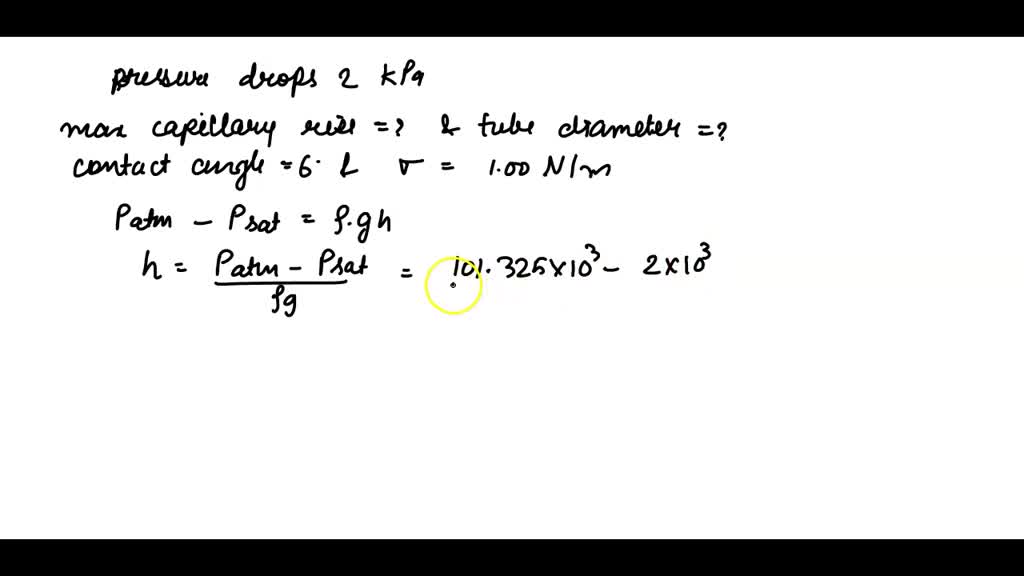 pressure drops 2 kPa
max capillary rise =? & tube diameter =?
contact angle = 6° & σ = 1.00 N/m
Patm - Psat = ρ.gh
h = Patm - Psat / ρg = 101.325×10³ - 2×10³